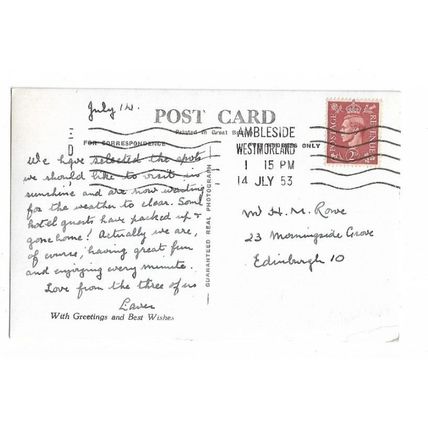 July 14.
POST CARD
Printed in Great
FOR CORRESPONDENCE
ONLY
AMBLESIDE
WESTMORLAND
1 15 PM
14 JLY 53
POSTAGE
REVENUE
2D
We have selected the spots
we should like to visit in
sunshine and are now waiting
for the weather to clear. Some
hotel guests have packed up &
gone home! Actually we are,
of course, having great fun
and enjoying every minute.
Love from the three of us
With Greetings and Best Wishes
GUARANTEED REAL PHOTOGRAPH
H. M. Rowe
23 Morningside Grove
Edinburgh 10